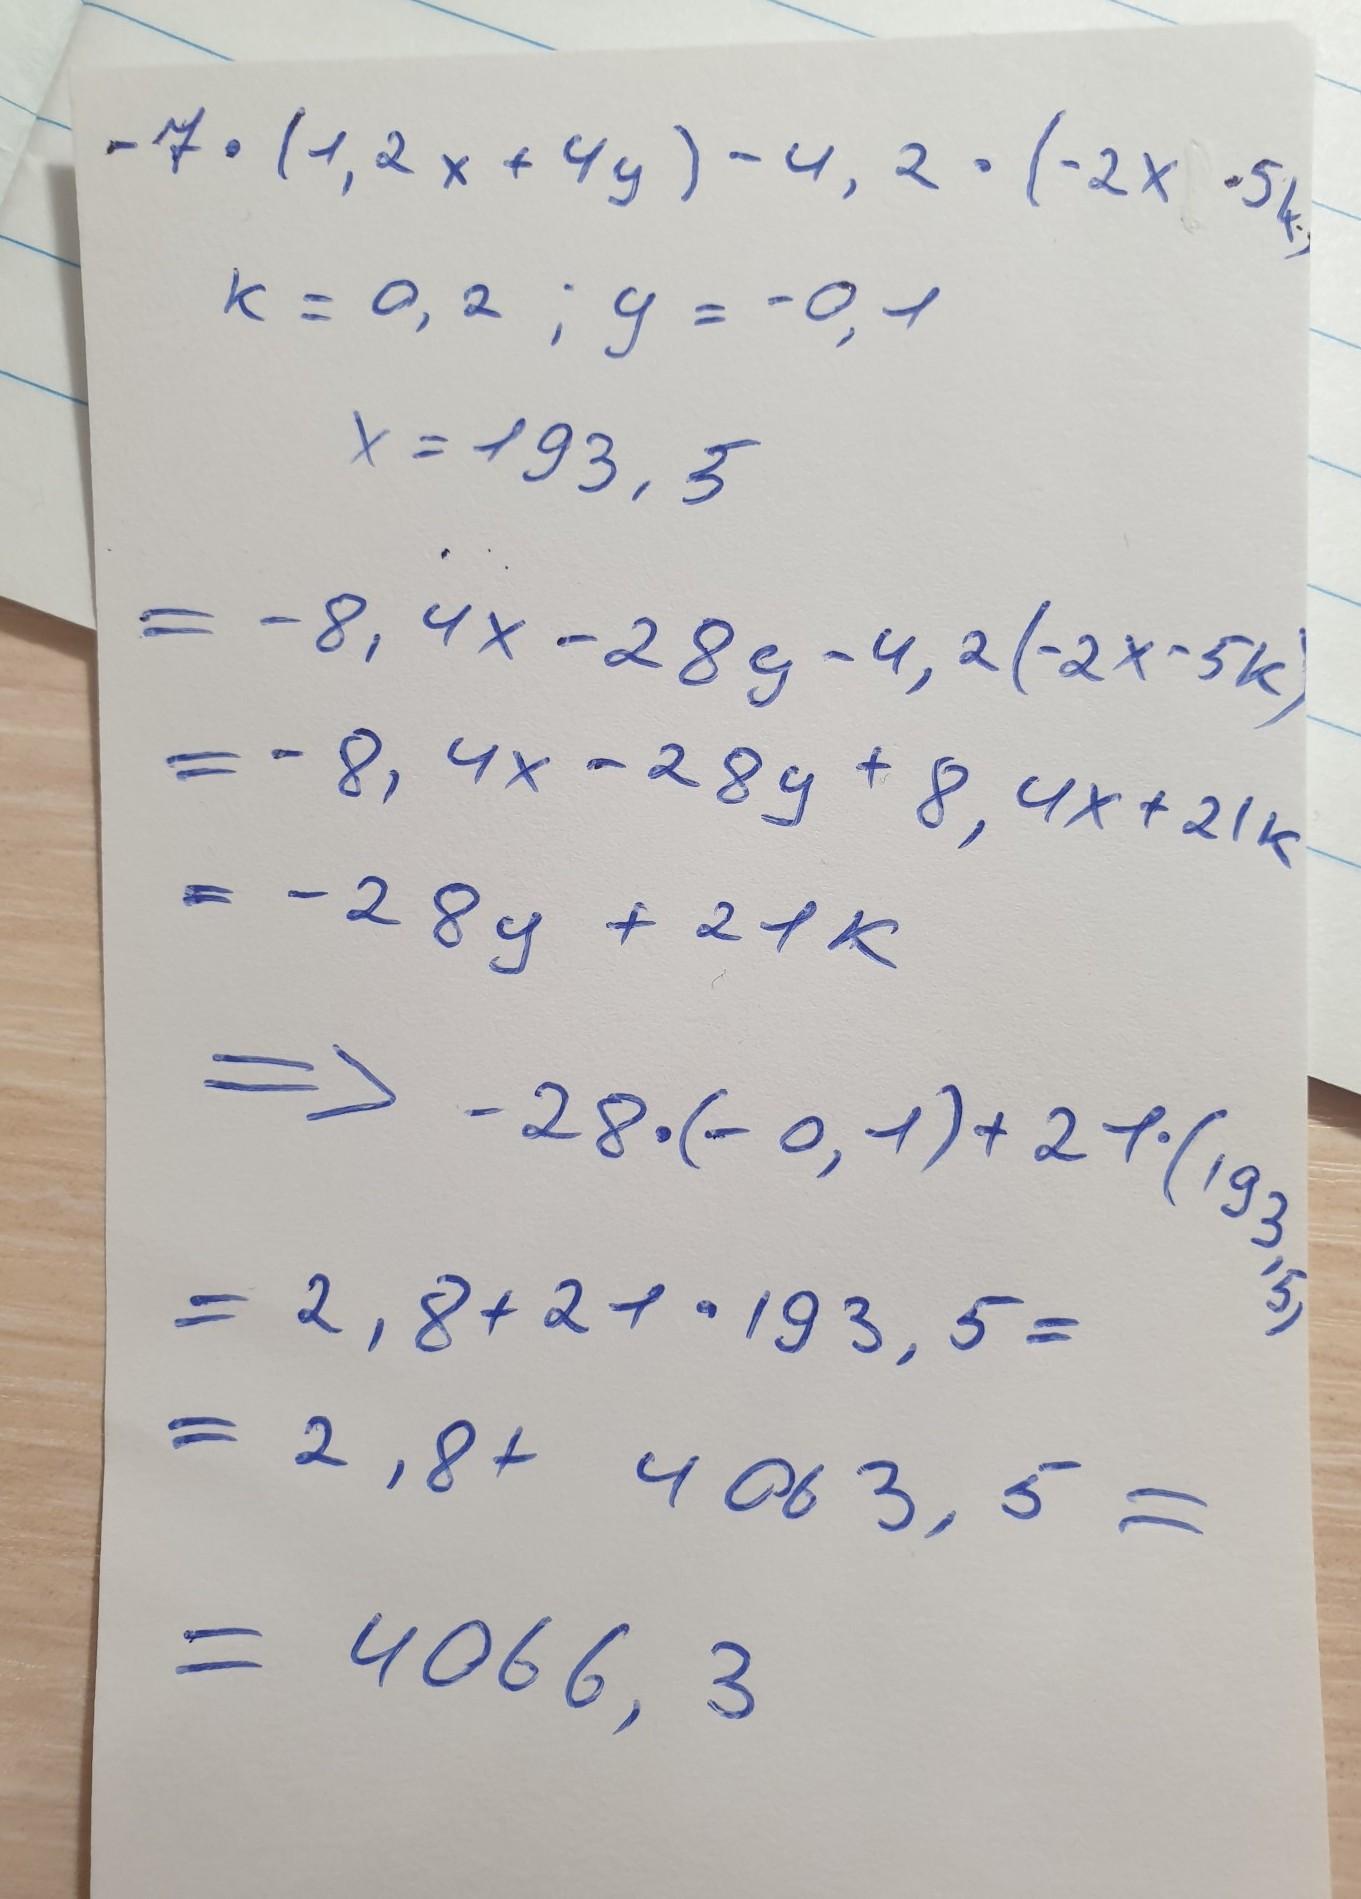 -7·(1,2x+4y)-4,2·(-2x-5k)
k=0,2; y=-0,1
x=193,5
=-8,4x-28y-4,2(-2x-5k)
=-8,4x-28y+8,4x+21k
=-28y+21k
=> -28·(-0,1)+21·(193,5)
=2,8+21·193,5=
=2,8+4063,5=
=4066,3